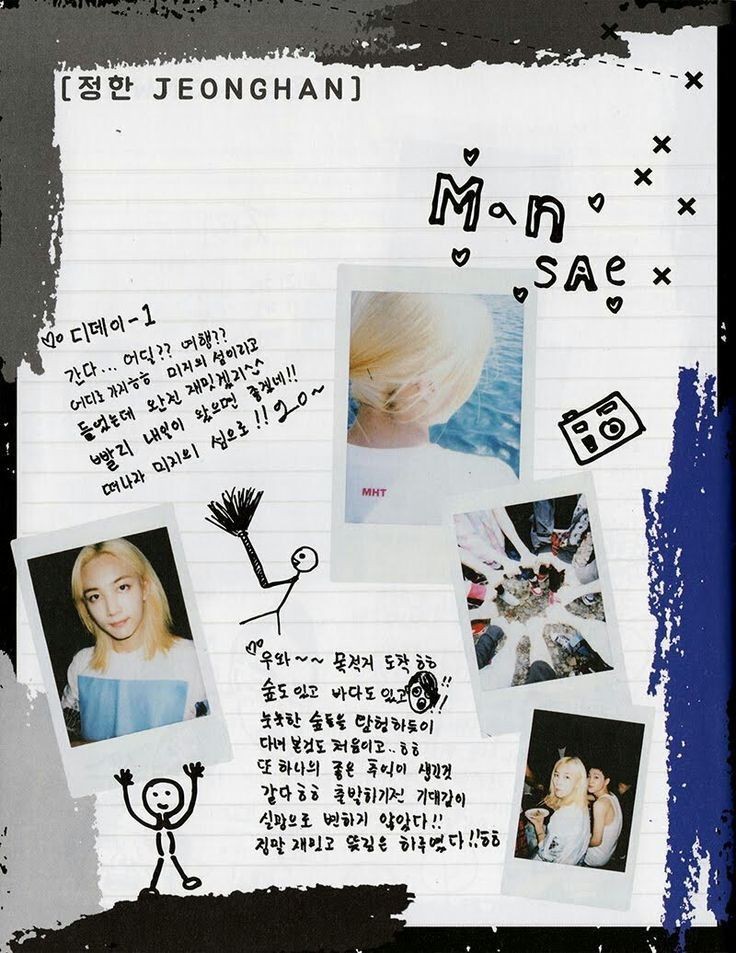 [정한 JEONGHAN]
Man
SAe
디데이-1
간다... 어딜?? 여행??
어디로 가지ㅎㅎ 미지의 섬이라고
들었는데 완전 재밌겠지^^
빨리 내일이 왔으면 좋겠네!!
떠나자 미지의 섬으로!! go~
MHT
우와~~ 목적지 도착ㅎㅎ
숲도 있고 바다도 있고!!
눅눅한 숲들을 탐험하듯이
다녀 본것도 처음이고..ㅎㅎ
또 하나의 좋은 추억이 생긴것
같다ㅎㅎ 출발하기전 기대감이
실망으로 변하지 않았다!!
정말 재밌고 뜻깊은 하루였다!!ㅎㅎ